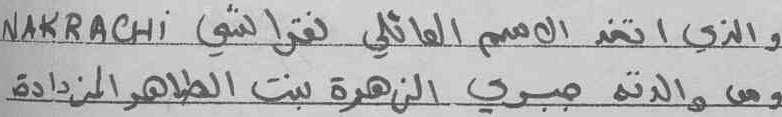 والذي اتخذ الاسم العائلي نقراشي NAKRACHi
ومن والدته جبري الزهرة بنت الطاهر المزدادة